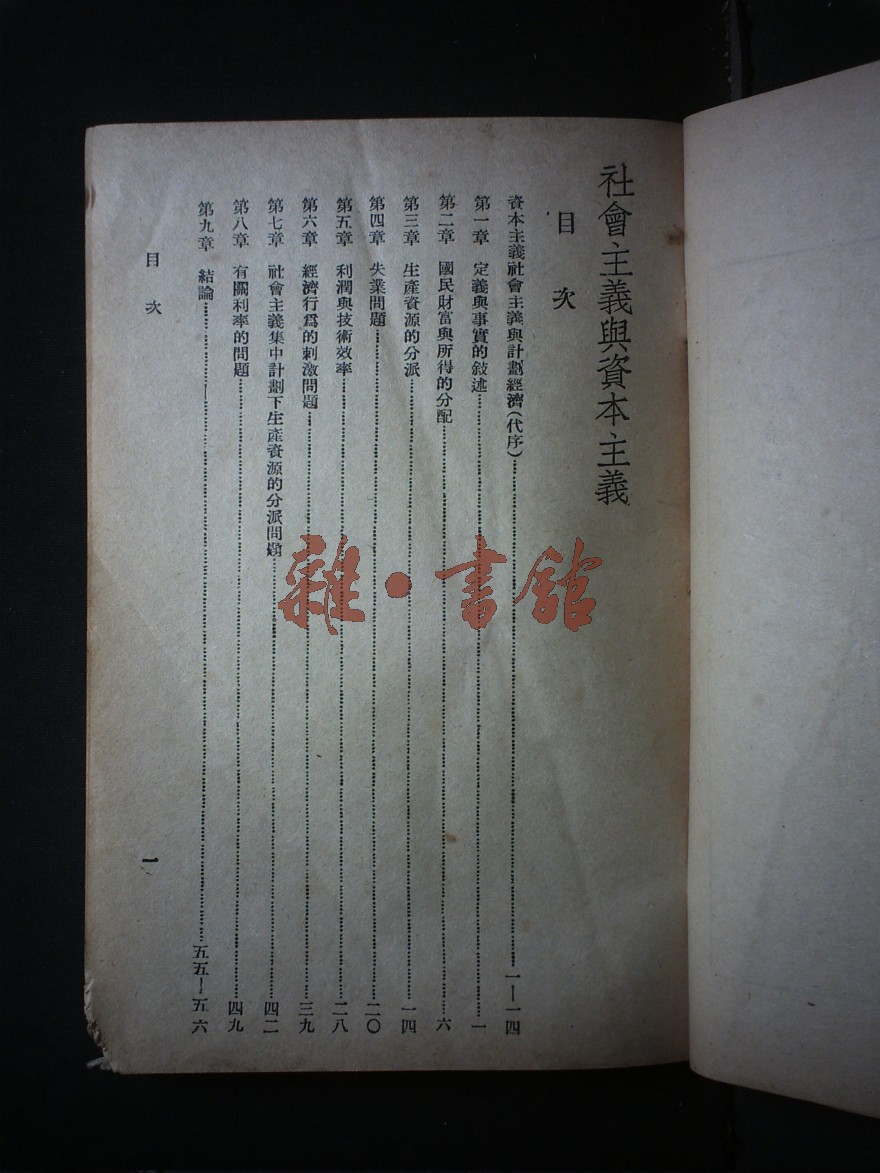 社會主義與資本主義
目次
資本主義社會主義與計劃經濟（代序）……一—一四
第一章 定義與事實的敍述……一
第二章 國民財富與所得的分配……六
第三章 生產資源的分派……一四
第四章 失業問題……二〇
第五章 利潤與技術效率……二八
第六章 經濟行爲的刺激問題……三九
第七章 社會主義集中計劃下生產資源的分派問題……四二
第八章 有關利率的問題……四九
第九章 結論……五五—五六
目次
一
雜·書館